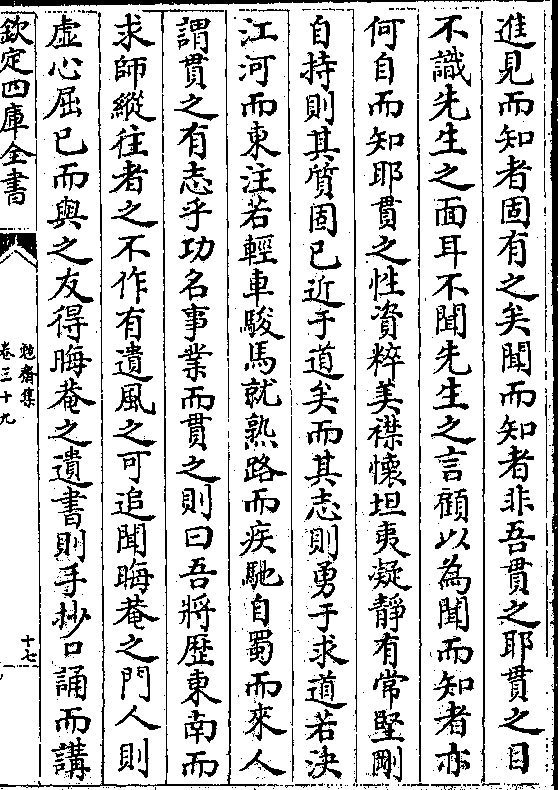 進見而知者固有之矣聞而知者非吾貫之耶貫之目
不識先生之面耳不聞先生之言顧以為聞而知者亦
何自而知耶貫之性資粹美襟懷坦夷凝靜有常堅剛
自持則其質固已近乎道矣而其志則勇于求道若決
江河而東注若輕車駿馬就熟路而疾馳自蜀而來人
謂貫之有志乎功名事業而貫之則曰吾將歷東南而
求師縱往者之不作有遺風之可追聞晦菴之門人則
虛心屈已而與之友得晦菴之遺書則手抄口誦而講
欽定四庫全書
勉齋集
卷三十九
十七